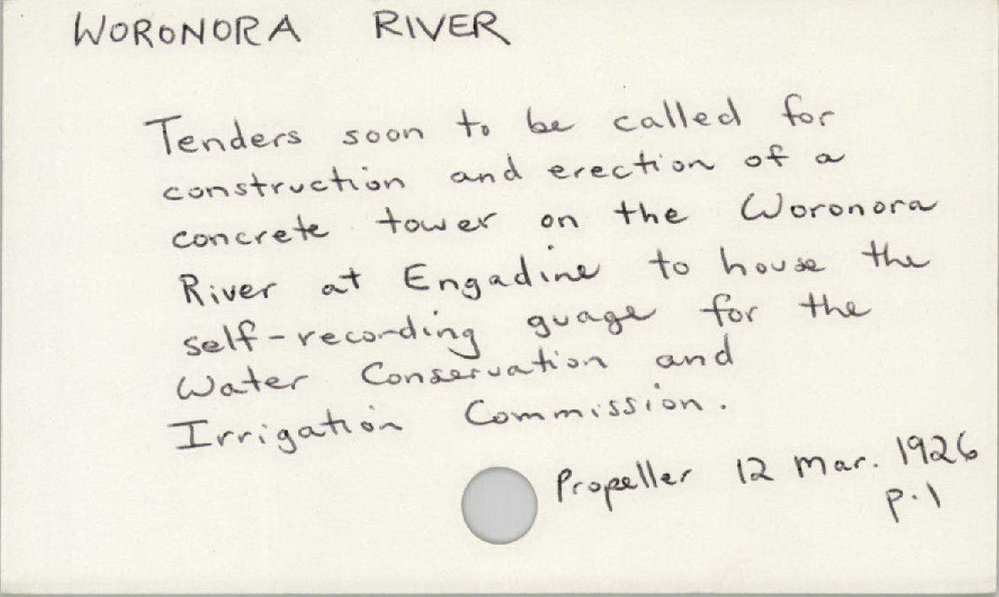 WORONORA RIVER
Tenders soon to be called for
construction and erection of a
concrete tower on the Woronora
River at Engadine to house the
self-recording guage for the
Water Conservation and
Irrigation Commission.
Propeller 12 Mar. 1926
p.1